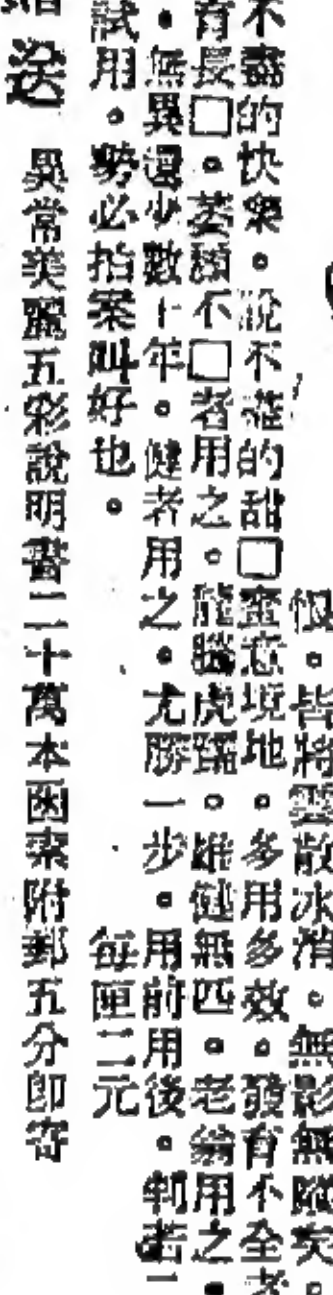 恨。皆將雲散冰消。無影無蹤矣。
不盡的快樂。說不盡的甜□蜜意境地。多用多效。發育不全者
育長□。萎頹不□者用之。龍騰虎躍。雄健無匹。老翁用之。
。無異還少數十年。健者用之。尤勝一步。用前用後。判若二
試用。勢必拍案叫好也。 每匣二元
送 異常美麗五彩說明書二十萬本函索附郵五分即寄